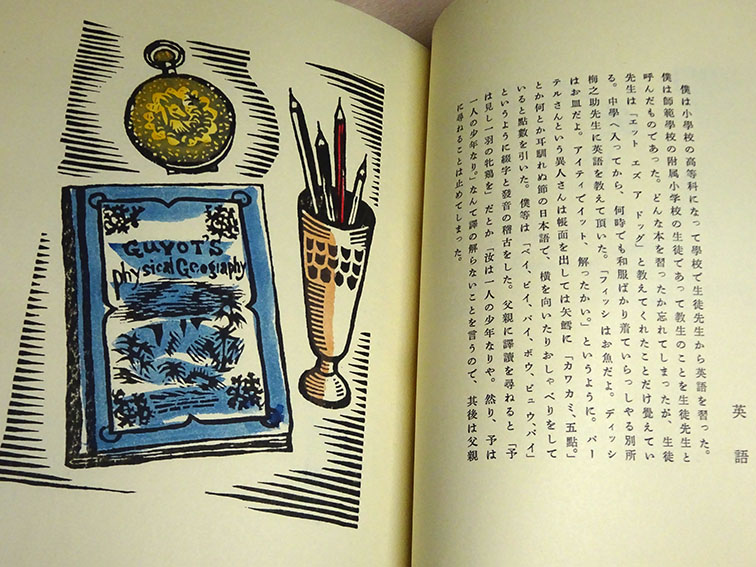 GUYOT'S
Physical Geography
英語
僕は小學校の高等科になって學校で生徒先生から英語を習った。
僕は師範學校の附属小学校の生徒であって教生のことを生徒先生と
呼んだものであった。どんな本を習ったか忘れてしまったが、生徒
先生は「エット エズ ア ドッグ」と教えてくれたことだけ覺えてい
る。中學へ入ってから、何時でも和服ばかり着ていらっしやる別所
梅之助先生に英語を教えて頂いた。「フィッシはお魚だよ。ディッシ
はお皿だよ。アイティでイット、解ったかい。」というように。バー
テルさんという異人さんは帳面を出しては矢鱈に「カワカミ、五點。」
とか何とか耳馴れぬ節の日本語で、橫を向いたりおしゃべりをして
いると點數を引いた。僕等は「ベイ、ビイ、バイ、ボウ、ビュウ、バイ」
というように綴字と發音の稽古をした。父親に譯讀を尋ねると「予
は見し一羽の牝鷄を」だとか「汝は一人の少年なりや。然り、予は
一人の少年なり。」なんて譯の解らないことを言うので、其後は父親
に尋ねることは止めてしまった。